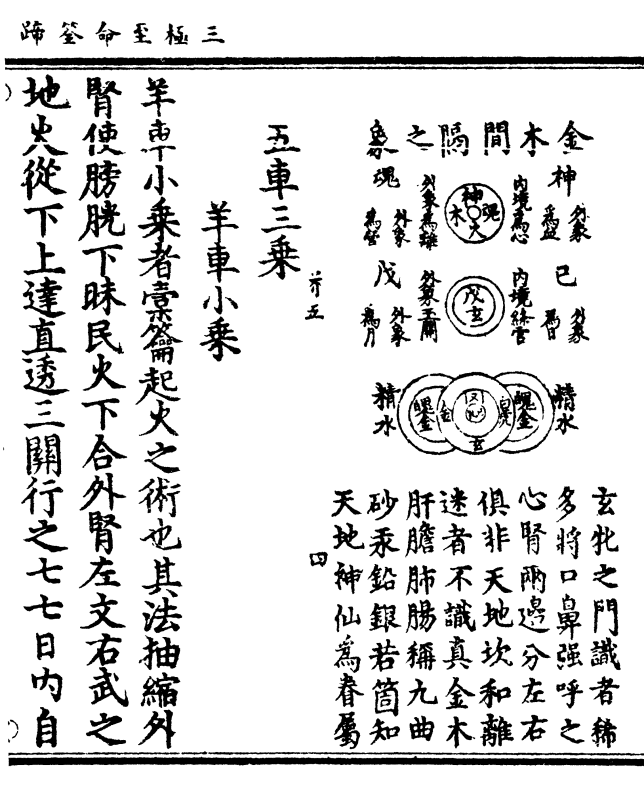 三極至命筌蹄
金木間隔之象
神 外象為並
內境為心
神
火
木
魂
外象為離
魂 外象為管
己 外象為日
內境絳宮
戊
玄
外象玉關
戊 外象為月
精水
魄金
玄
魄金
精水
玄牝之門識者稀
多將口鼻強呼之
心腎兩邊分左右
俱非天地坎和離
迷者不識真金木
肝膽肺腸稱九曲
砂汞鉛銀若箇知
天地神仙為眷屬
四
五車三乘 第五
羊車小乘
羊車小乘者橐籥起火之術也其法抽縮外
腎使膀胱下昧民火下合外腎左文右武之
地火從下上達直透三關行之七七日內自